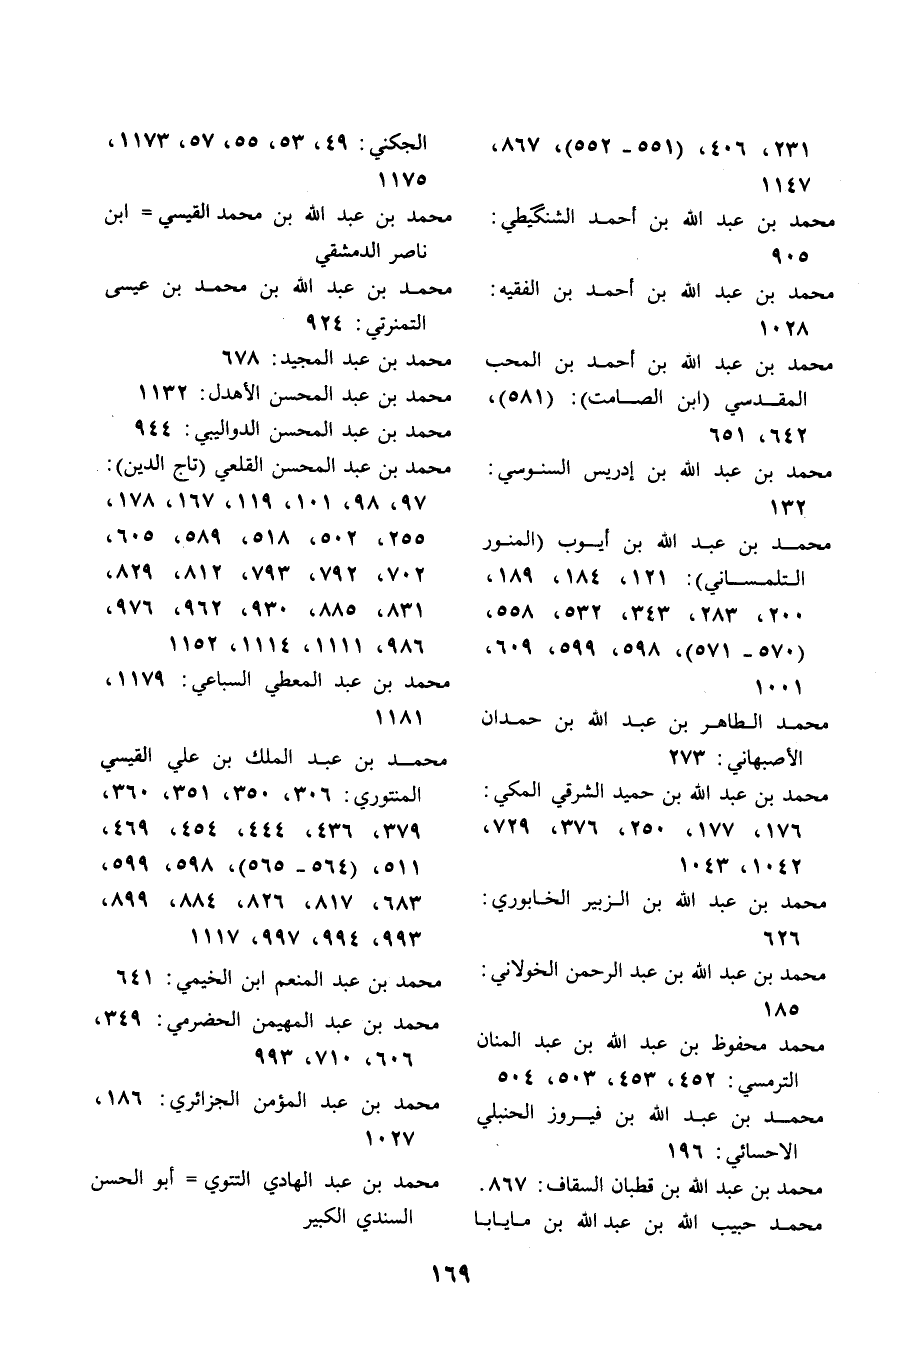 ٢٣١، ٤٠٦، (٥٥١ ـ ٥٥٢)، ٨٦٧،
١١٤٧
محمد بن عبد الله بن أحمد الشنگيطي:
٩٠٥
محمد بن عبد الله بن أحمد بن الفقيه:
١٠٢٨
محمد بن عبد الله بن أحمد بن المحب
المقدسي (ابن الصامت): (٥٨١)،
٦٤٢، ٦٥١
محمد بن عبد الله بن إدريس السنوسي:
١٣٢
محمد بن عبد الله بن أيوب (المنور
التلمساني): ١٢١، ١٨٤، ١٨٩،
٢٠٠، ٢٨٣، ٣٤٣، ٥٣٢، ٥٥٨،
(٥٧٠ ـ ٥٧١)، ٥٩٨، ٥٩٩، ٦٠٩،
١٠٠١
محمد الطاهر بن عبد الله بن حمدان
الأصبهاني: ٢٧٣
محمد بن عبد الله بن حميد الشرقي المكي:
١٧٦، ١٧٧، ٢٥٠، ٣٧٦، ٧٢٩،
١٠٤٢، ١٠٤٣
محمد بن عبد الله بن الزبير الخابوري:
٦٢٦
محمد بن عبد الله بن عبد الرحمن الخولاني:
١٨٥
محمد محفوظ بن عبد الله بن عبد المنان
الترمسي: ٤٥٢، ٤٥٣، ٥٠٣، ٥٠٤
محمد بن عبد الله بن فيروز الحنبلي
الاحسائي: ١٩٦
محمد بن عبد الله بن قطبان السقاف: ٨٦٧.
محمد حبيب الله بن عبد الله بن مايابا
الجكني: ٤٩، ٥٣، ٥٥، ٥٧، ١١٧٣،
١١٧٥
محمد بن عبد الله بن محمد القيسي = ابن
ناصر الدمشقي
محمد بن عبد الله بن محمد بن عيسى
التمنرتي: ٩٢٤
محمد بن عبد المجيد: ٦٧٨
محمد بن عبد المحسن الأهدل: ١١٣٢
محمد بن عبد المحسن الدواليبي: ٩٤٤
محمد بن عبد المحسن القلعي (تاج الدين):
٩٧، ٩٨، ١٠١، ١١٩، ١٦٧، ١٧٨،
٢٥٥، ٥٠٢، ٥١٨، ٥٨٩، ٦٠٥،
٧٠٢، ٧٩٢، ٧٩٣، ٨١٢، ٨٢٩،
٨٣١، ٨٨٥، ٩٣٠، ٩٦٢، ٩٧٦،
٩٨٦، ١١١١، ١١١٤، ١١٥٢
محمد بن عبد المعطي السباعي: ١١٧٩،
١١٨١
محمد بن عبد الملك بن علي القيسي
المنتوري: ٣٠٦، ٣٥٠، ٣٥١، ٣٦٠،
٣٧٩، ٤٣٦، ٤٤٤، ٤٥٤، ٤٦٩،
٥١١، (٥٦٤ ـ ٥٦٥)، ٥٩٨، ٥٩٩،
٦٨٣، ٨١٧، ٨٢٦، ٨٨٤، ٨٩٩،
٩٩٣، ٩٩٤، ٩٩٧، ١١١٧
محمد بن عبد المنعم ابن الخيمي: ٦٤١
محمد بن عبد المهيمن الحضرمي: ٣٤٩،
٦٠٦، ٧١٠، ٩٩٣
محمد بن عبد المؤمن الجزائري: ١٨٦،
١٠٢٧
محمد بن عبد الهادي التتوي = أبو الحسن
السندي الكبير
١٦٩